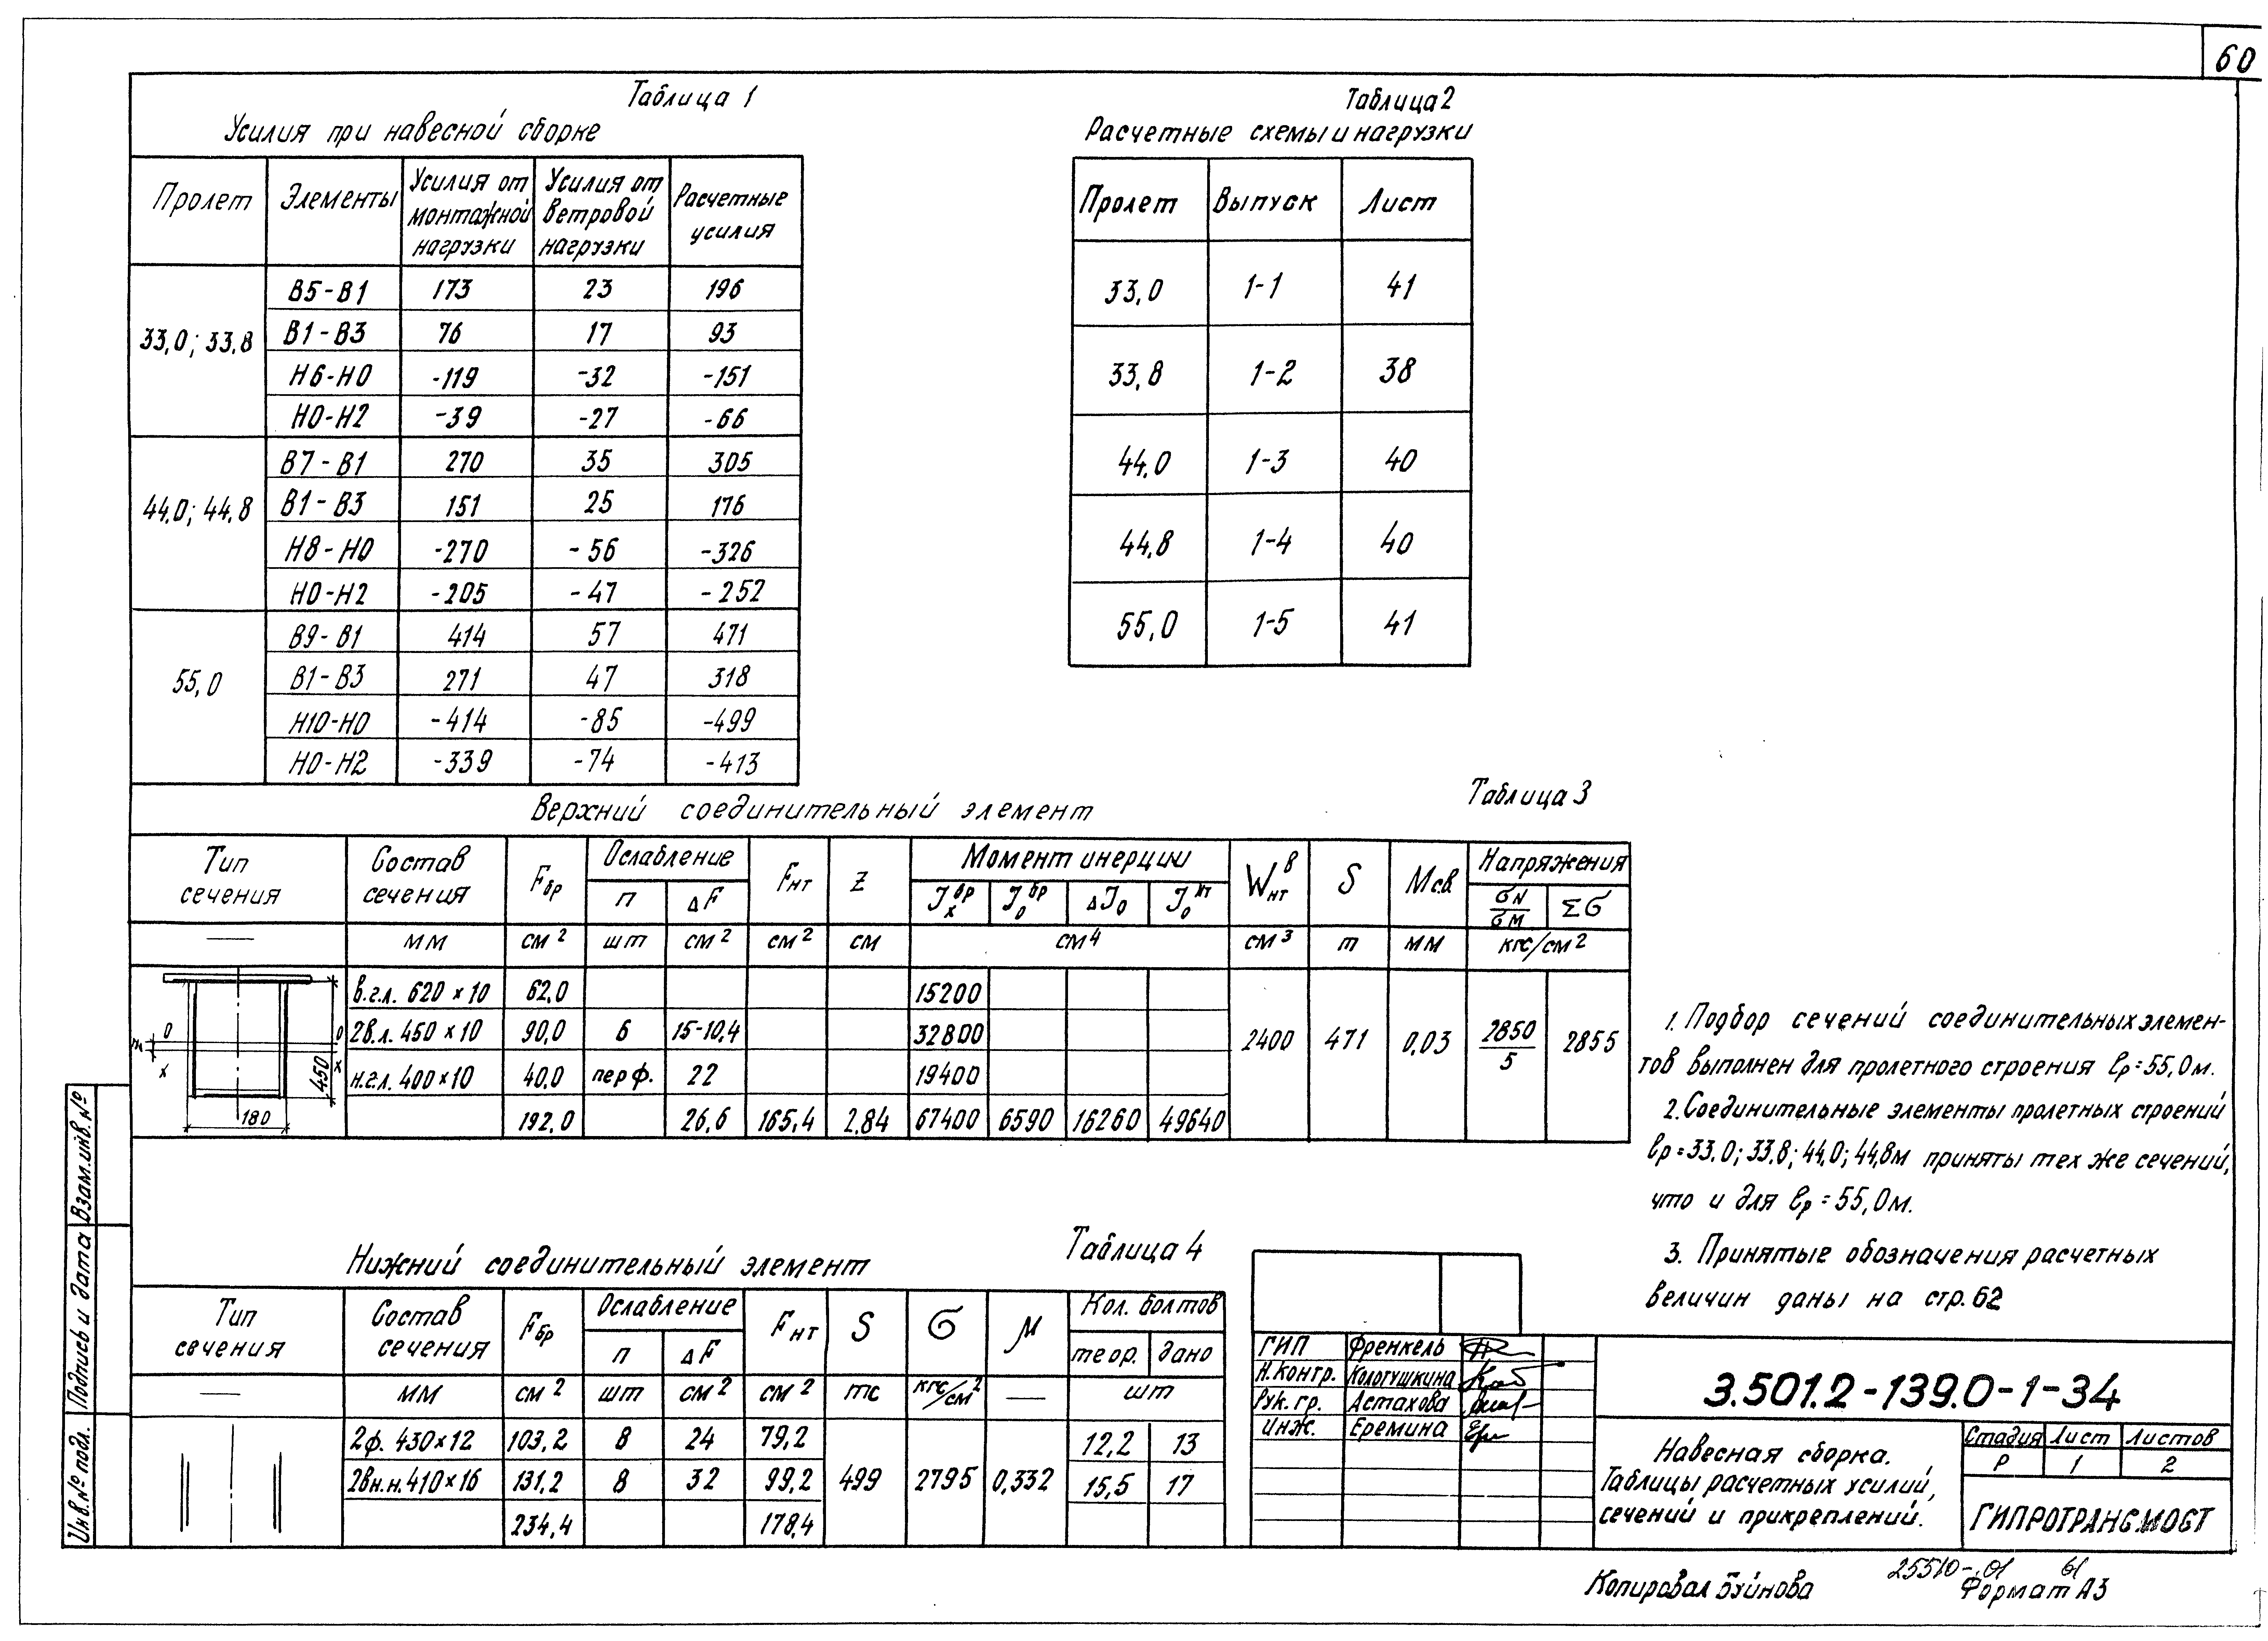 60
Таблица 1
Усилия при навесной сборке
Пролет | Элементы | Усилия от монтажной нагрузки | Усилия от ветровой нагрузки | Расчетные усилия
33,0; 33,8 | В5-В1 | 173 | 23 | 196
В1-В3 | 76 | 17 | 93
Н6-Н0 | -119 | -32 | -151
Н0-Н2 | -39 | -27 | -66
44,0; 44,8 | В7-В1 | 270 | 35 | 305
В1-В3 | 151 | 25 | 176
Н8-Н0 | -270 | -56 | -326
Н0-Н2 | -205 | -47 | -252
55,0 | В9-В1 | 414 | 57 | 471
В1-В3 | 271 | 47 | 318
Н10-Н0 | -414 | -85 | -499
Н0-Н2 | -339 | -74 | -413
Таблица 2
Расчетные схемы и нагрузки
Пролет | Выпуск | Лист
33,0 | 1-1 | 41
33,8 | 1-2 | 38
44,0 | 1-3 | 40
44,8 | 1-4 | 40
55,0 | 1-5 | 41
Таблица 3
Верхний соединительный элемент
Тип сечения | Состав сечения | Fбр | Ослабление | Fнт | Z | Момент инерции | Wнт в | S | Мс.в. | Напряжения
п | ΔF | Jx бр | J0 бр | ΔJ0 | J0 нт | σN/σM | Σσ
— | мм | см2 | шт | см2 | см2 | см | см4 | см3 | т | мм | кгс/см2
в.г.л. 620 × 10 | 62,0 | 15200
2в.л. 450 × 10 | 90,0 | 6 | 15-10,4 | 32800 | 2400 | 471 | 0,03 | 2850/5 | 2855
н.г.л. 400×10 | 40,0 | перф. | 22 | 19400
192,0 | 26,6 | 165,4 | 2,84 | 67400 | 6590 | 16260 | 49640
0 0
x x
450
180
1. Подбор сечений соединительных элемен-
тов выполнен для пролетного строения ℓр=55,0м.
2. Соединительные элементы пролетных строений
ℓр=33,0; 33,8; 44,0; 44,8м приняты тех же сечений,
что и для ℓр=55,0м.
3. Принятые обозначения расчетных
величин даны на стр. 62
Таблица 4
Нижний соединительный элемент
Тип сечения | Состав сечения | Fбр | Ослабление | Fнт | S | σ | μ | Кол. болтов
п | ΔF | теор. | дано
— | мм | см2 | шт | см2 | см2 | тс | кгс/см2 | — | шт
2ф. 430×12 | 103,2 | 8 | 24 | 79,2 | 12,2 | 13
2вн.н. 410×16 | 131,2 | 8 | 32 | 99,2 | 499 | 2795 | 0,332 | 15,5 | 17
234,4 | 178,4
Взам.инв.№
Подпись и дата
Инв.№ подл.
ГИП Френкель
Н.контр. Кологушкина
Рук. гр. Астахова
Инж. Еремина
3.501.2-139.0-1-34
Навесная сборка.
Таблицы расчетных усилий,
сечений и прикреплений.
Стадия | Лист | Листов
Р | 1 | 2
ГИПРОТРАНСМОСТ
25510-01 61
Копировал Буйнова Формат А3